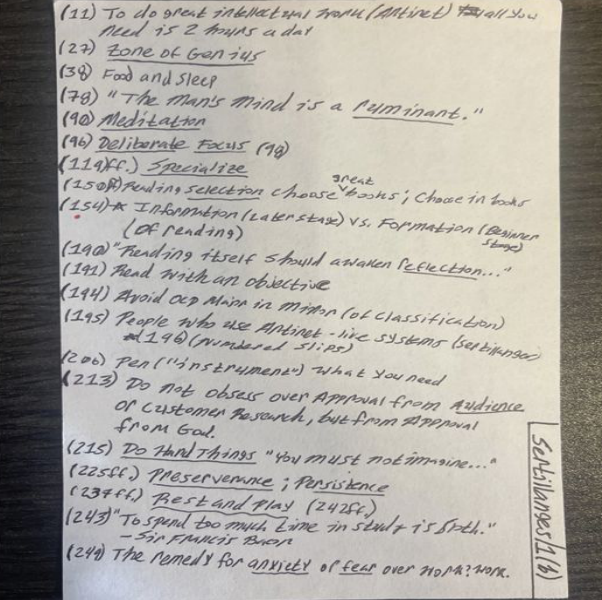 (11) To do great intellectual work (Antinet) all you
need is 2 hours a day
(27) Zone of Genius
(38) Food and Sleep
(78) "The Man's Mind is a ruminant."
(90) Meditation
(96) Deliberate Focus (98)
(119ff.) Specialize
(150ff) Reading selection choose great books; choose in books
(154)* Information (Later stage) vs. Formation (Beginner stage)
(of reading)
(190) "Reading itself should awaken reflection..."
(191) Read with an objective
(194) Avoid OCD Major in Minor (of classification)
(195) People who use Antinet-like systems (Sertillanges)
196) (numbered slips)
(206) Pen ("instrument") what you need
(213) Do not obsess over Approval from Audience
or Customer Research, but from Approval
from God.
(215) Do Hard Things "You must not imagine..."
(225ff.) Preserverance; Persistence
(237ff.) Rest and Play (242ff.)
(243) "To spend too much time in study is sloth."
- Sir Francis Bacon
(249) The remedy for anxiety or fear over work? Work.
Sertillanges/1(b)